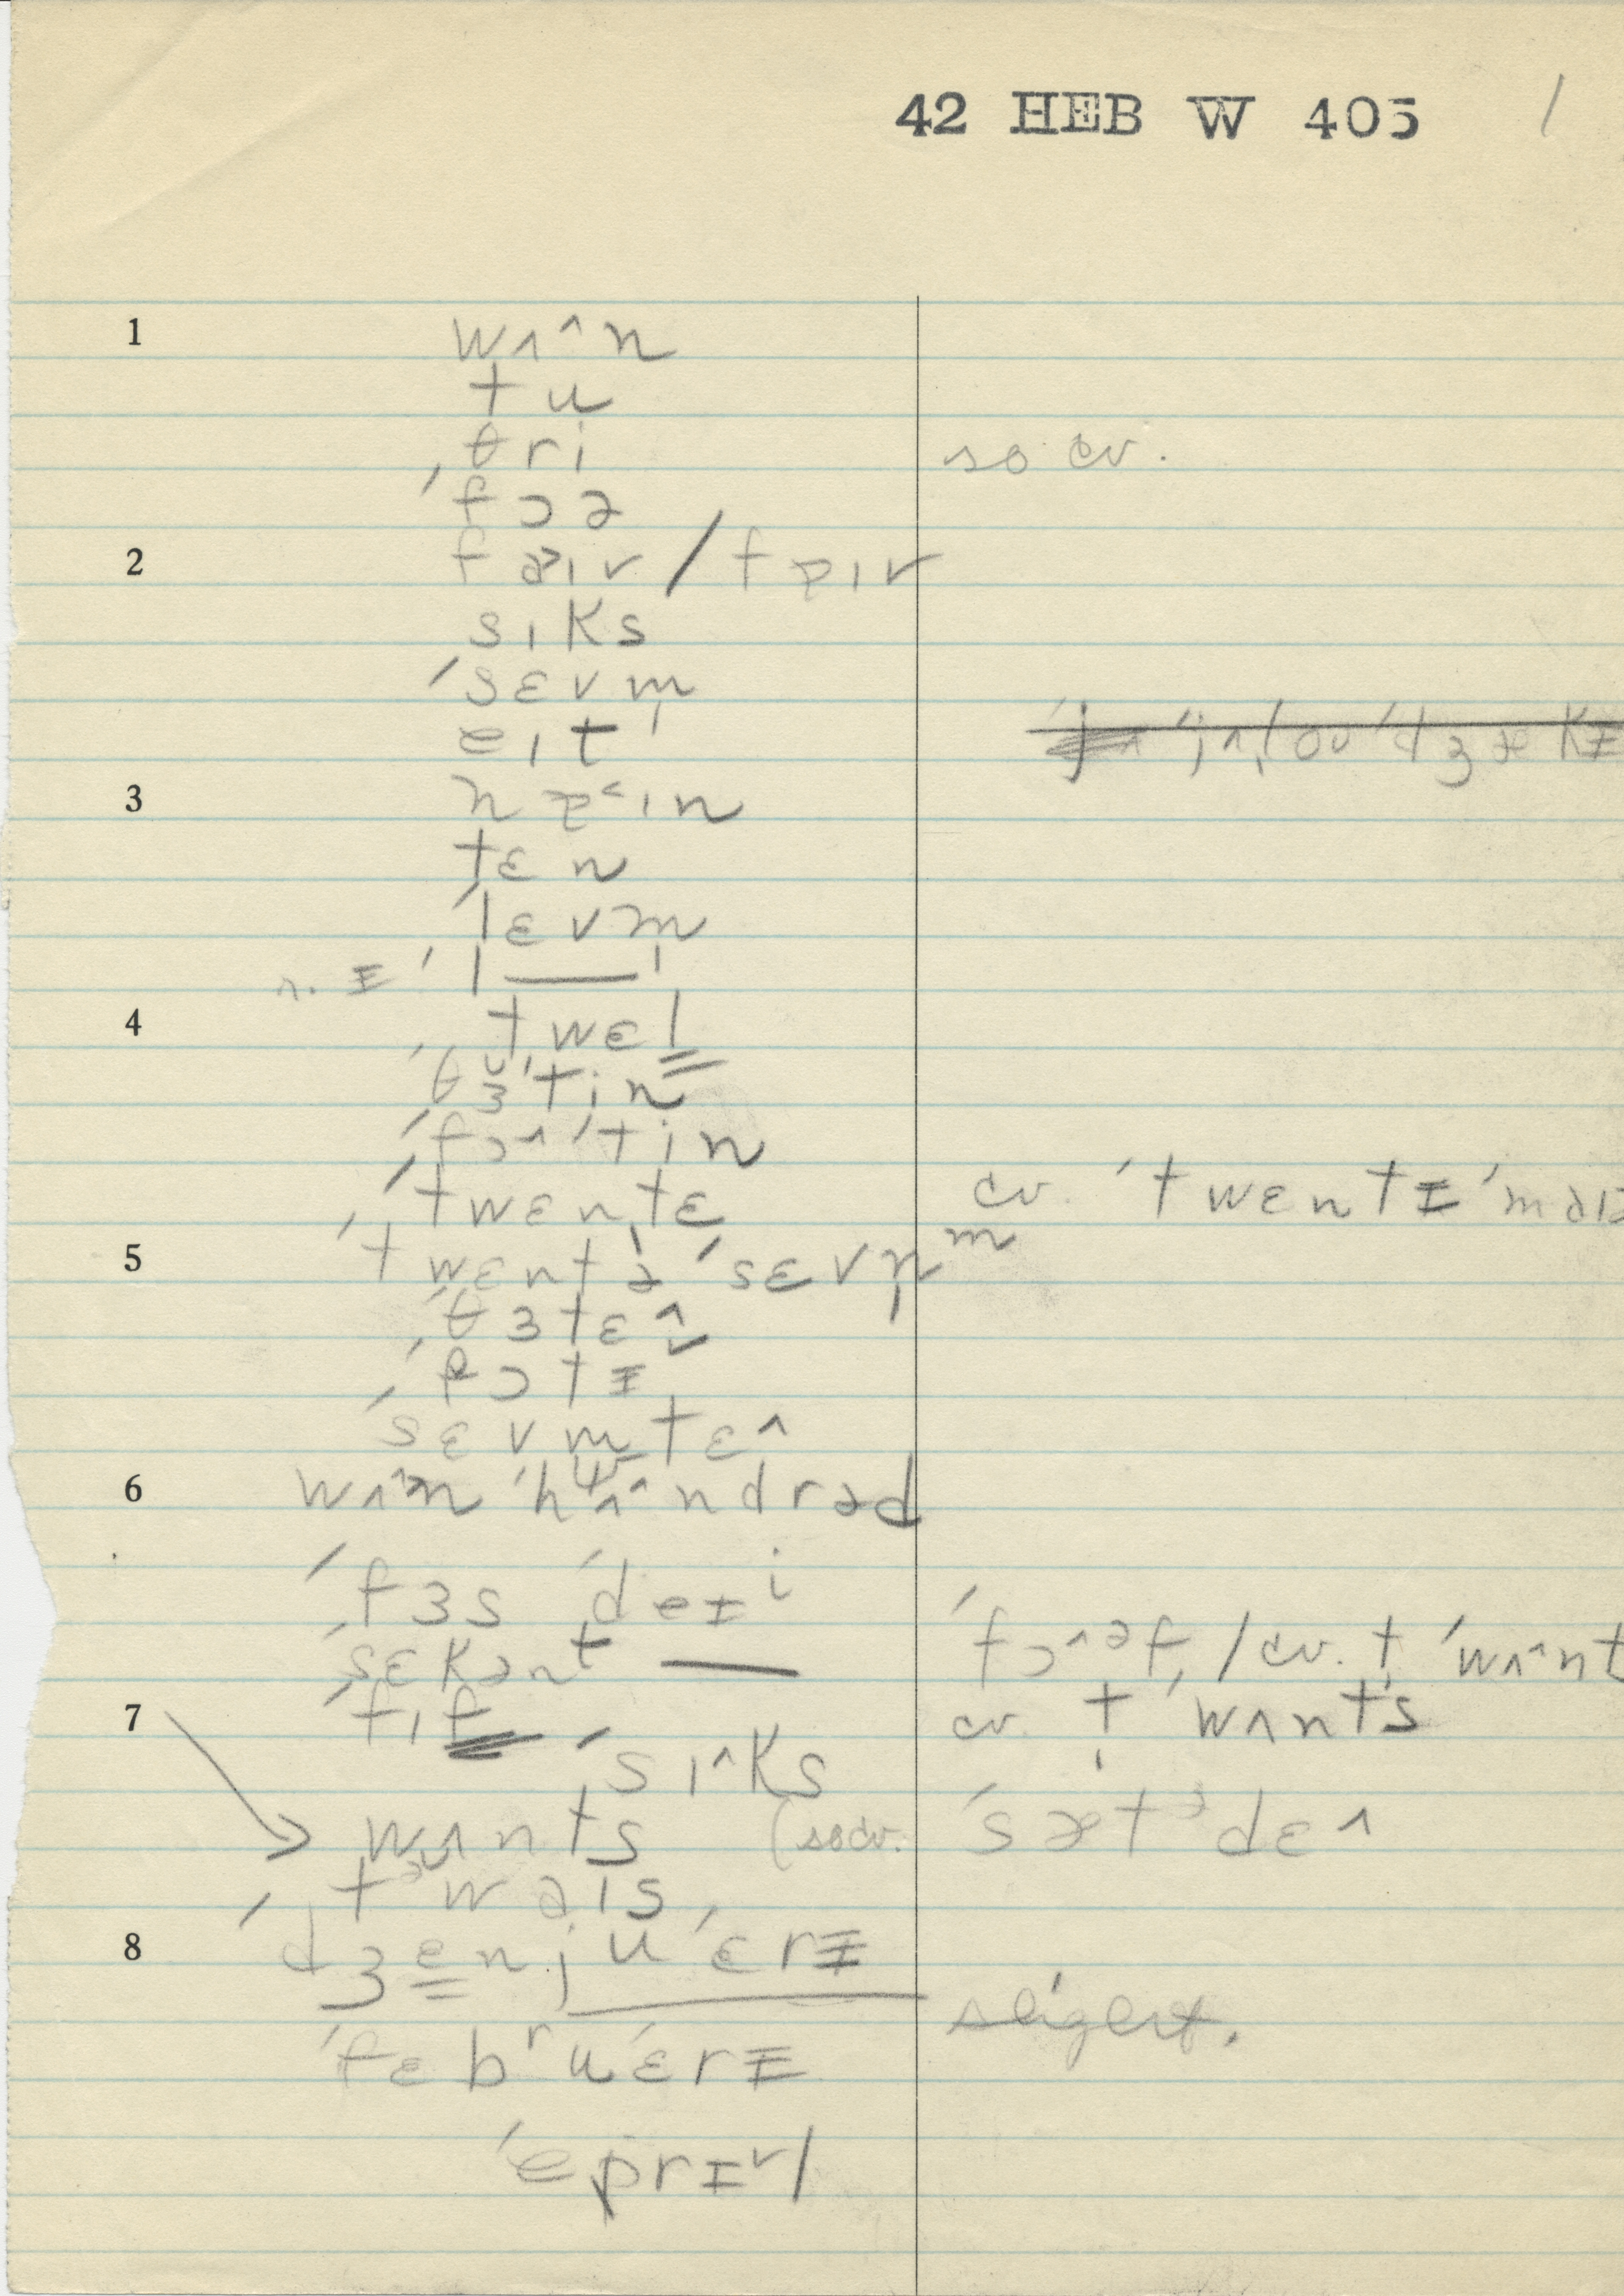 42 HEB W 405 /
1 wʌ^n
tu
ˈθri so cv.
ˈfɔə
2 faɪv / fɐɪv
sɪks
ˈsɛvm̩
eɪt
3 nɐ˂ɪn
tɛn
ˈlɛvm̩
r. ɪ ˈl——
4 twɛl
ˈθɜˈtin
ˈfɔ^ˈtin
ˈtwɛntɛ cv. ˈtwɛntɪ
5 ˈtwɛntəˈsɛvn̩ m
ˈθɜtɛ^
ˈfɔtɪ
ˈsɛvm̩tɛ^
6 wʌn ˈhʌ^ndrəd
ˈfɜs ˈdeɪi
ˈsɛkənt —— ˈfɔ^əf / cv. t ˈwʌ^nt
7 ˈfɪf cv. t ˈwʌnts
ˈsɪ^ks
wʌnts (so cv. ˈsætɜdɛ^
təwaɪs
8 ˈdʒenjuˈɛrɪ
ˈfɛbruˈɛrɪ
ˈeprɪ˅l